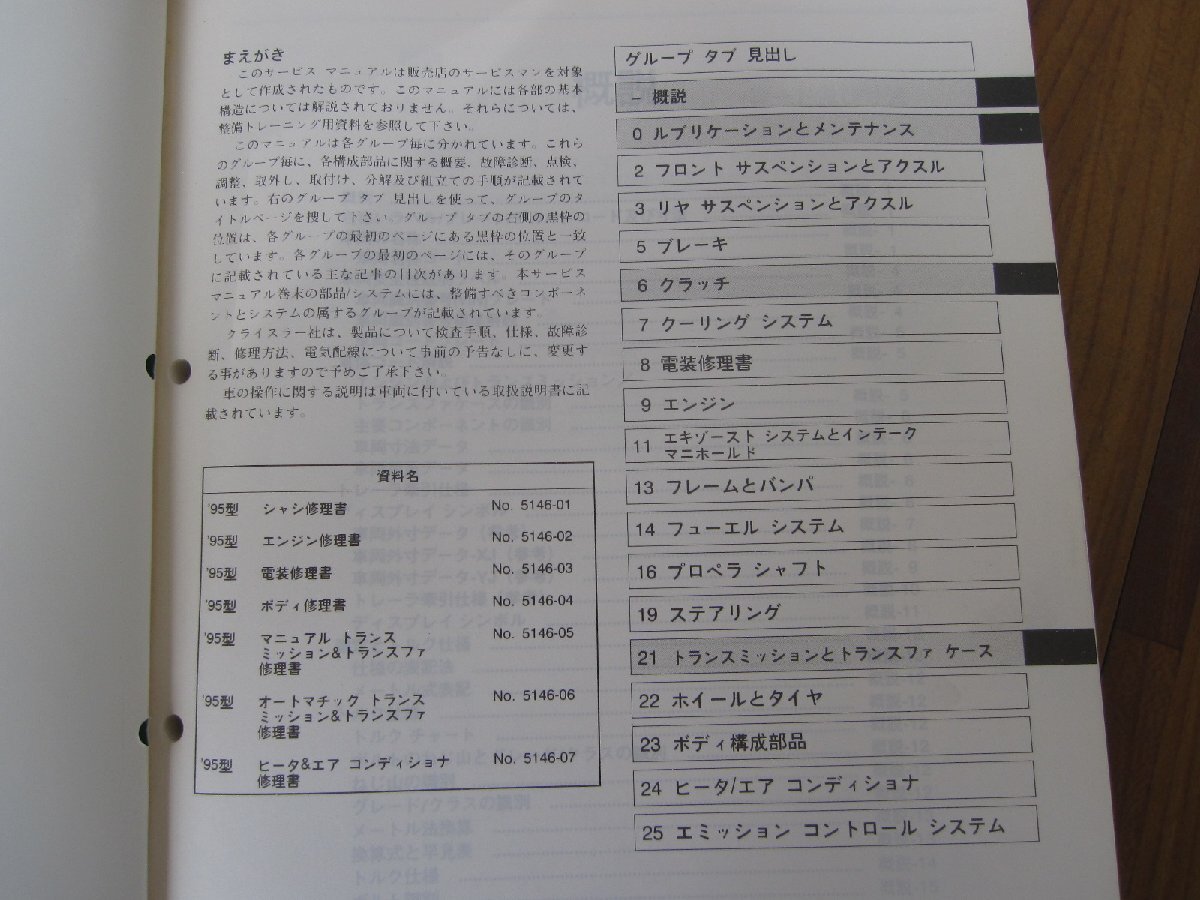 まえがき
このサービス マニュアルは販売店のサービスマンを対象
として作成されたものです。このマニュアルには各部の基本
構造については解説されておりません。それらについては、
整備トレーニング用資料を参照して下さい。
このマニュアルは各グループ毎に分かれています。これら
のグループ毎に、各構成部品に関する概要、故障診断、点検、
調整、取外し、取付け、分解及び組立ての手順が記載されて
います。右のグループ タブ 見出しを使って、グループのタ
イトルページを捜して下さい。グループ タブの右側の黒枠の
位置は、各グループの最初のページにある黒枠の位置と一致
しています。各グループの最初のページには、そのグループ
に記載されている主な記事の目次があります。本サービス
マニュアル巻末の部品/システムには、整備すべきコンポーネ
ントとシステムの属するグループが記載されています。
クライスラー社は、製品について検査手順、仕様、故障診
断、修理方法、電気配線について事前の予告なしに、変更す
る事がありますので予めご了承下さい。
車の操作に関する説明は車両に付いている取扱説明書に記
載されています。
資料名
'95型 シャシ修理書 No. 5146-01
'95型 エンジン修理書 No. 5146-02
'95型 電装修理書 No. 5146-03
'95型 ボディ修理書 No. 5146-04
'95型 マニュアル トランス No. 5146-05
ミッション&トランスファ
修理書
'95型 オートマチック トランス No. 5146-06
ミッション&トランスファ
修理書
'95型 ヒータ&エア コンディショナ No. 5146-07
修理書
グループ タブ 見出し
- 概説
0 ルブリケーションとメンテナンス
2 フロント サスペンションとアクスル
3 リヤ サスペンションとアクスル
5 ブレーキ
6 クラッチ
7 クーリング システム
8 電装修理書
9 エンジン
11 エキゾースト システムとインテーク
マニホールド
13 フレームとバンパ
14 フューエル システム
16 プロペラ シャフト
19 ステアリング
21 トランスミッションとトランスファ ケース
22 ホイールとタイヤ
23 ボディ構成部品
24 ヒータ/エア コンディショナ
25 エミッション コントロール システム